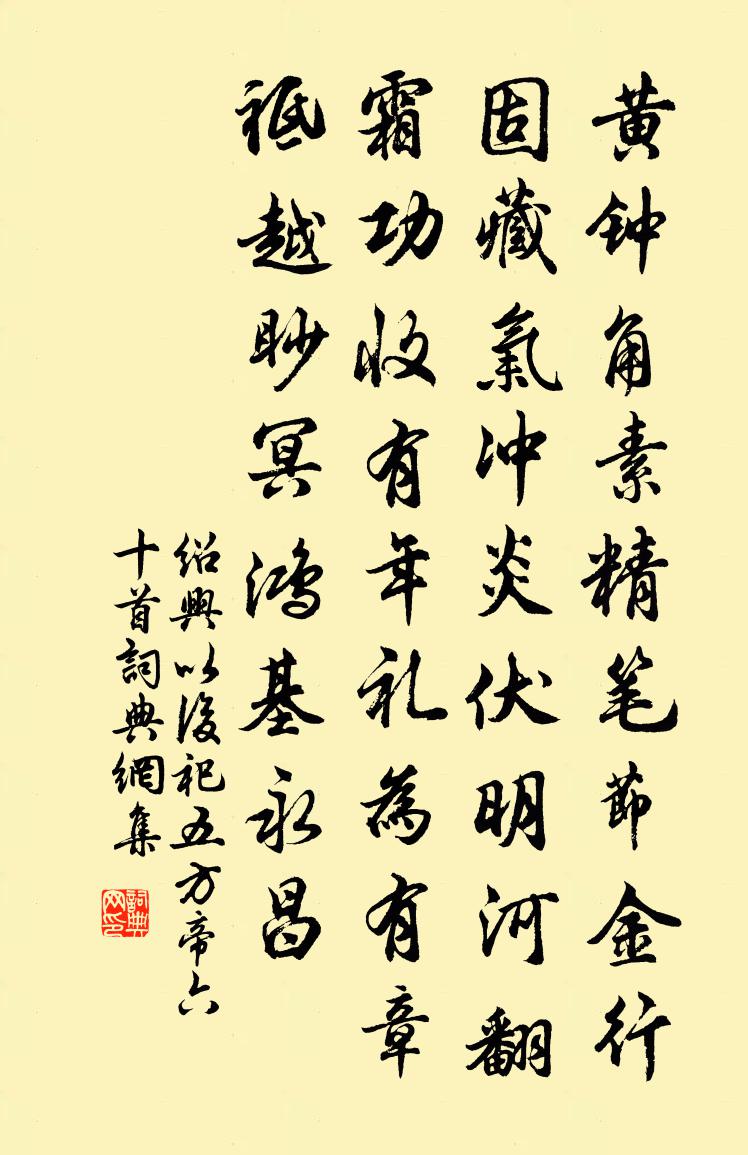 黄钟角素精笔節金行
固藏氣冲炎伏明河翻
霜功收有年礼為有章
祗越眇冥鸿基永昌
绍興以後祀五方帝六
十首詞典網集
詞典网印